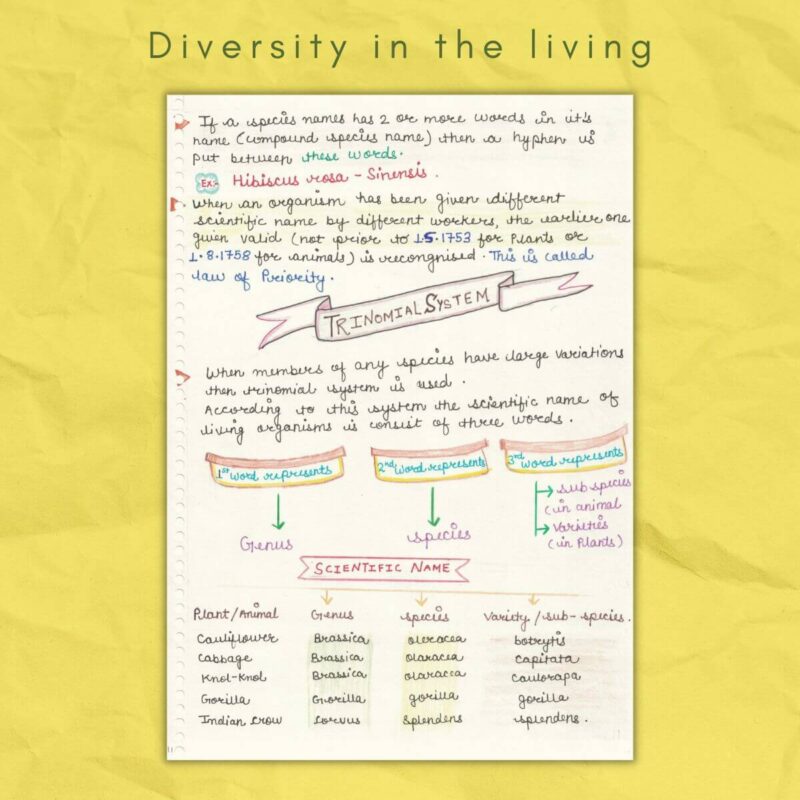 Diversity in the living
If a species names has 2 or more words in it's
name (compound species name) then a hyphen is
put between these words.
Ex:- Hibiscus rosa - Sinensis.
When an organism has been given different
scientific name by different workers, the earlier one
given valid (not prior to 1.5.1753 for Plants or
1.8.1758 for animals) is recongnised. This is called
law of Priority.
TRINOMIAL SYSTEM
When members of any species have large variations
then trinomial system is used.
According to this system the scientific name of
living organisms is consist of three words.
1st word represents 2nd word represents 3rd word represents
Genus species sub species
(in animal
Varieties
(in Plants)
SCIENTIFIC NAME
Plant/Animal Genus species Variety/sub-species.
Cauliflower Brassica oleracea botrytis
Cabbage Brassica olaracea Capitata
Knol-Knol Brassica olaracea Caulorapa
Gorilla Gorilla gorilla gorilla
Indian Crow Corvus Splendens splendens.